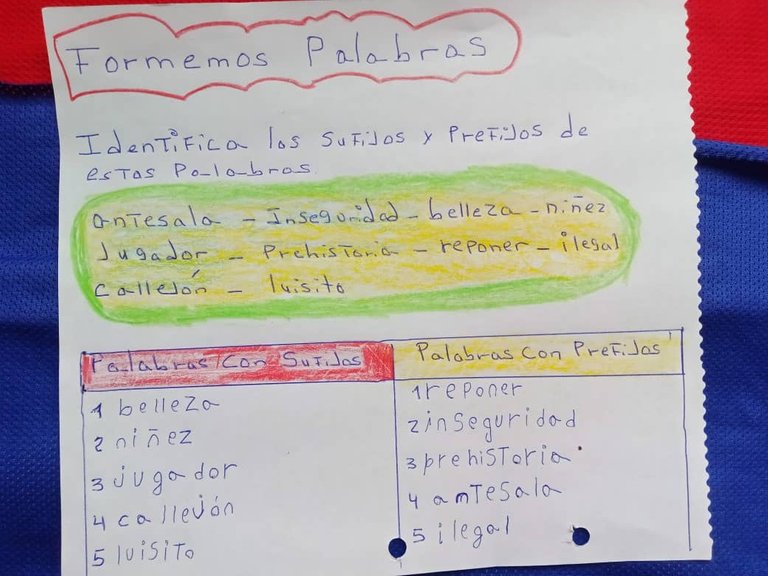 Formemos Palabras
Identifica los Sufijos y Prefijos de
estas Palabras
antesala - Inseguridad - belleza - niñez
Jugador - Prehistoria - reponer - ilegal
Callejón - luisito
Palabras Con Sufijos
1 belleza
2 niñez
3 jugador
4 callejón
5 luisito
Palabras Con Prefijos
1 reponer
2 inseguridad
3 prehistoria
4 amtesala
5 ilegal